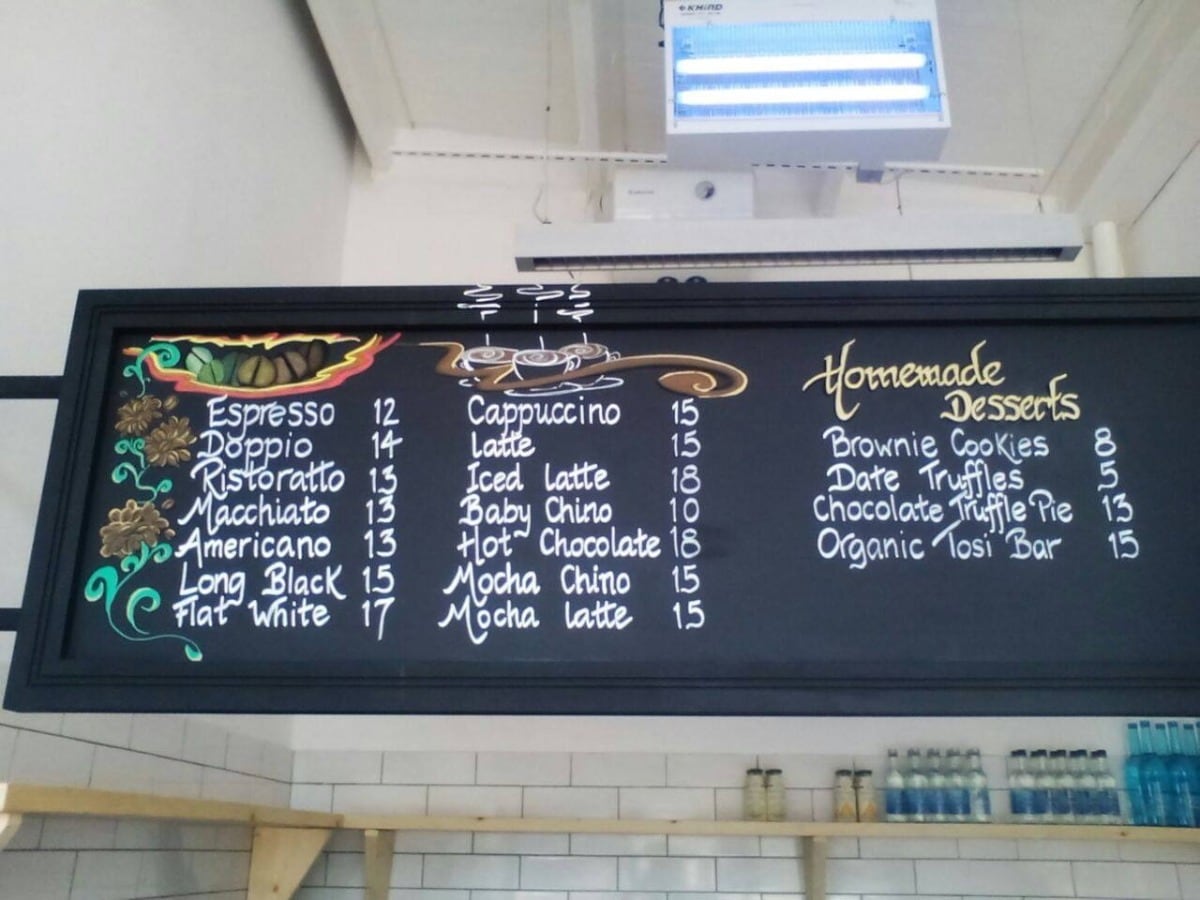 KHIND
Espresso 12
Doppio 14
Ristoratto 13
Macchiato 13
Americano 13
Long Black 15
Flat White 17
Cappuccino 15
latte 15
Iced latte 18
Baby Chino 10
Hot Chocolate 18
Mocha Chino 15
Mocha latte 15
Homemade
Desserts
Brownie Cookies 8
Date Truffles 5
Chocolate Truffle Pie 13
Organic Tosi Bar 15